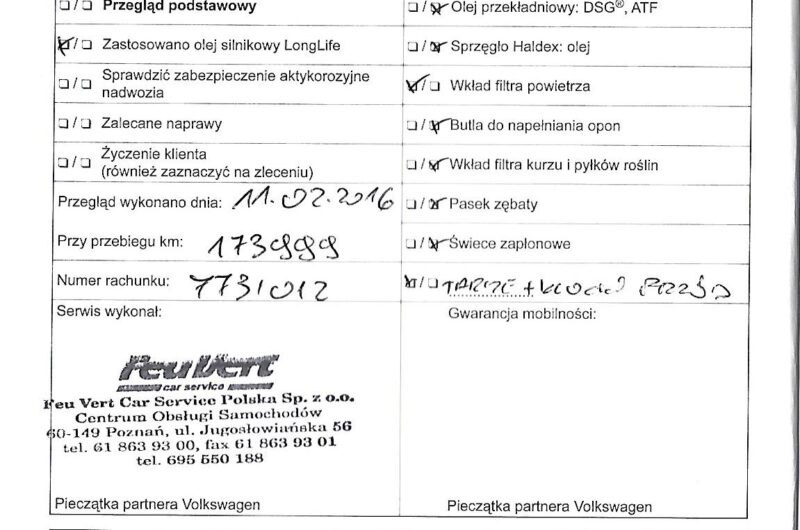 ❏/❏ Przegląd podstawowy
❏/❏ Olej przekładniowy: DSG®, ATF
❏/❏ Zastosowano olej silnikowy LongLife
❏/❏ Sprzęgło Haldex: olej
❏/❏ Sprawdzić zabezpieczenie aktykorozyjne
nadwozia
❏/❏ Wkład filtra powietrza
❏/❏ Zalecane naprawy
❏/❏ Butla do napełniania opon
❏/❏ Życzenie klienta
(również zaznaczyć na zleceniu)
❏/❏ Wkład filtra kurzu i pyłków roślin
Przegląd wykonano dnia: 11.02.2016
❏/❏ Pasek zębaty
Przy przebiegu km: 173999
❏/❏ Świece zapłonowe
Numer rachunku: 7731012
❏/❏ TARCZE + KLOCKI PRZÓD
Serwis wykonał:
Gwarancja mobilności:
Feu Vert
car service
Feu Vert Car Service Polska Sp. z o.o.
Centrum Obsługi Samochodów
60-149 Poznań, ul. Jugosłowiańska 56
tel. 61 863 93 00, fax 61 863 93 01
tel. 695 550 188
Pieczątka partnera Volkswagen
Pieczątka partnera Volkswagen